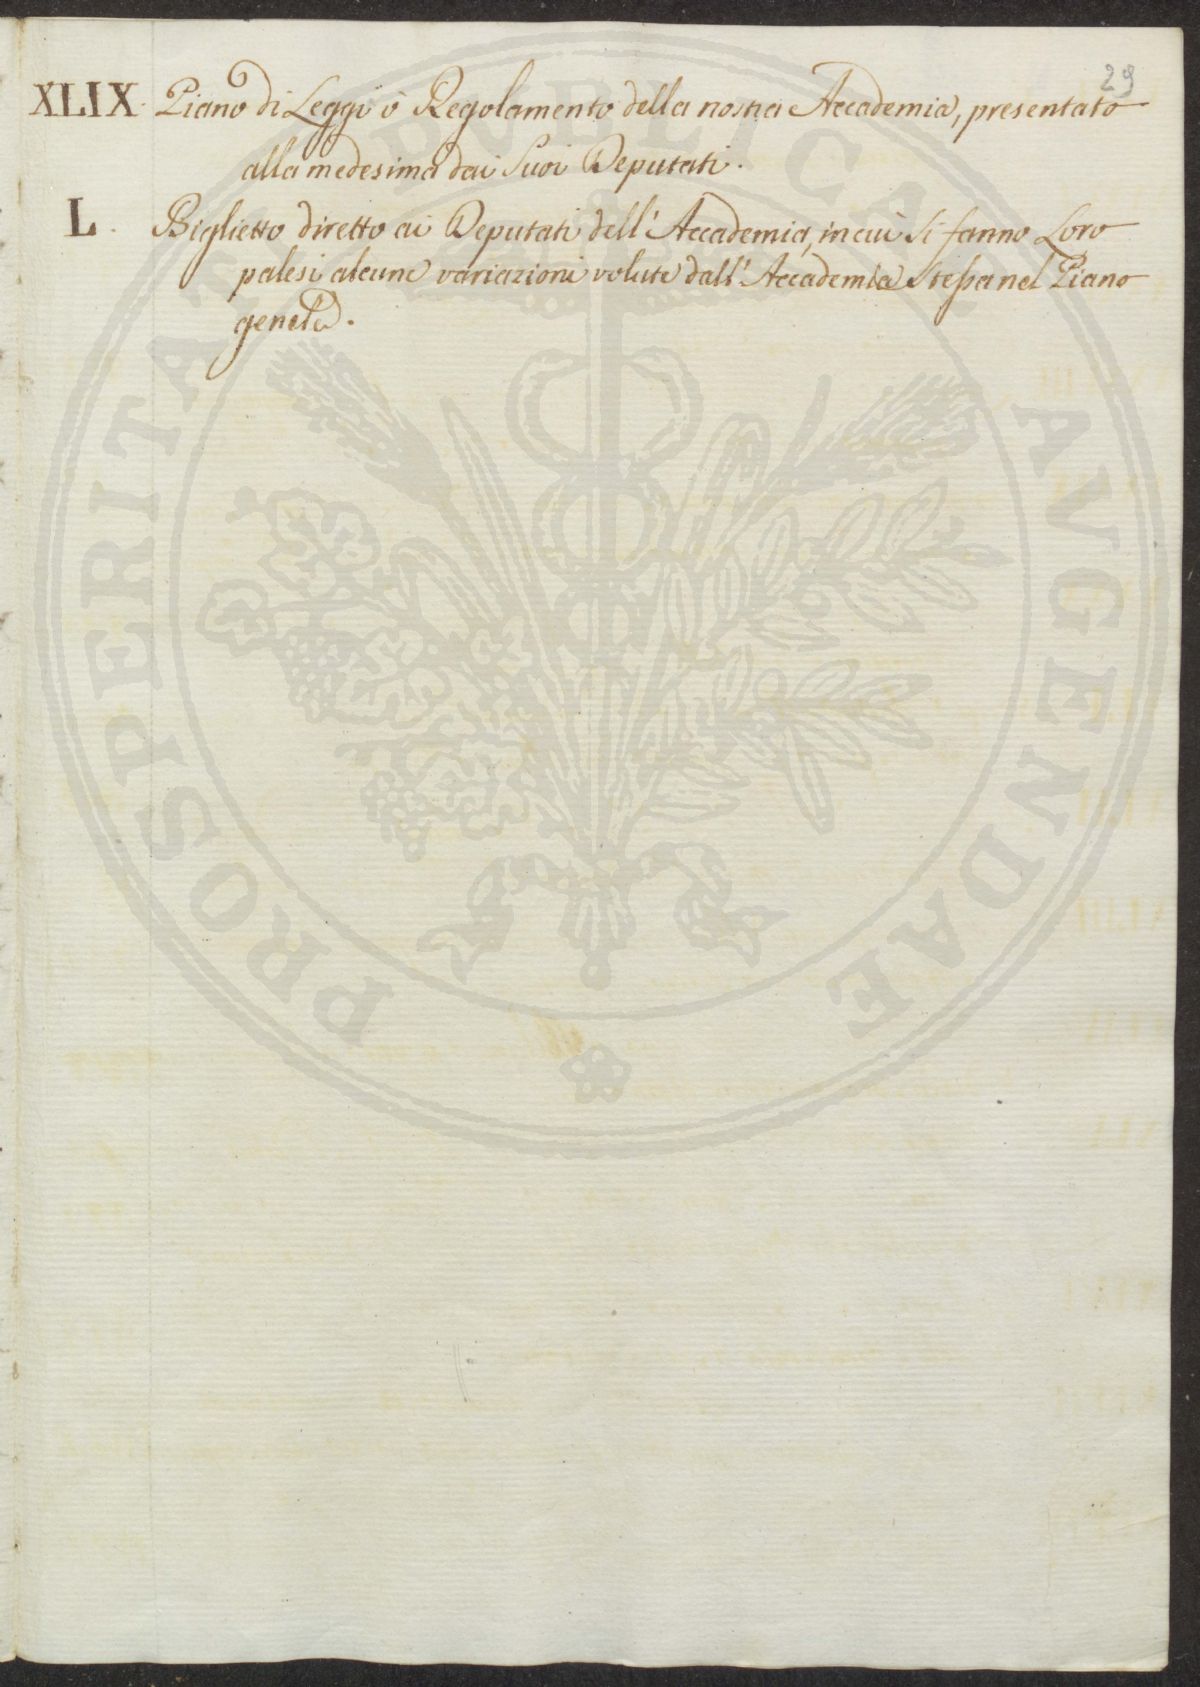 29
XLIX. Piano di Leggi ò Regolamento della nostra Accademia, presentato
alla medesima dai Suoi Deputati.
L. Biglietto diretto ai Deputati dell'Accademia, in cui Si fanno Loro
palesi alcune variazioni volute dall'Accademia Stessa nel Piano
PROSPERITATI PUBLICAE AVGENDAE